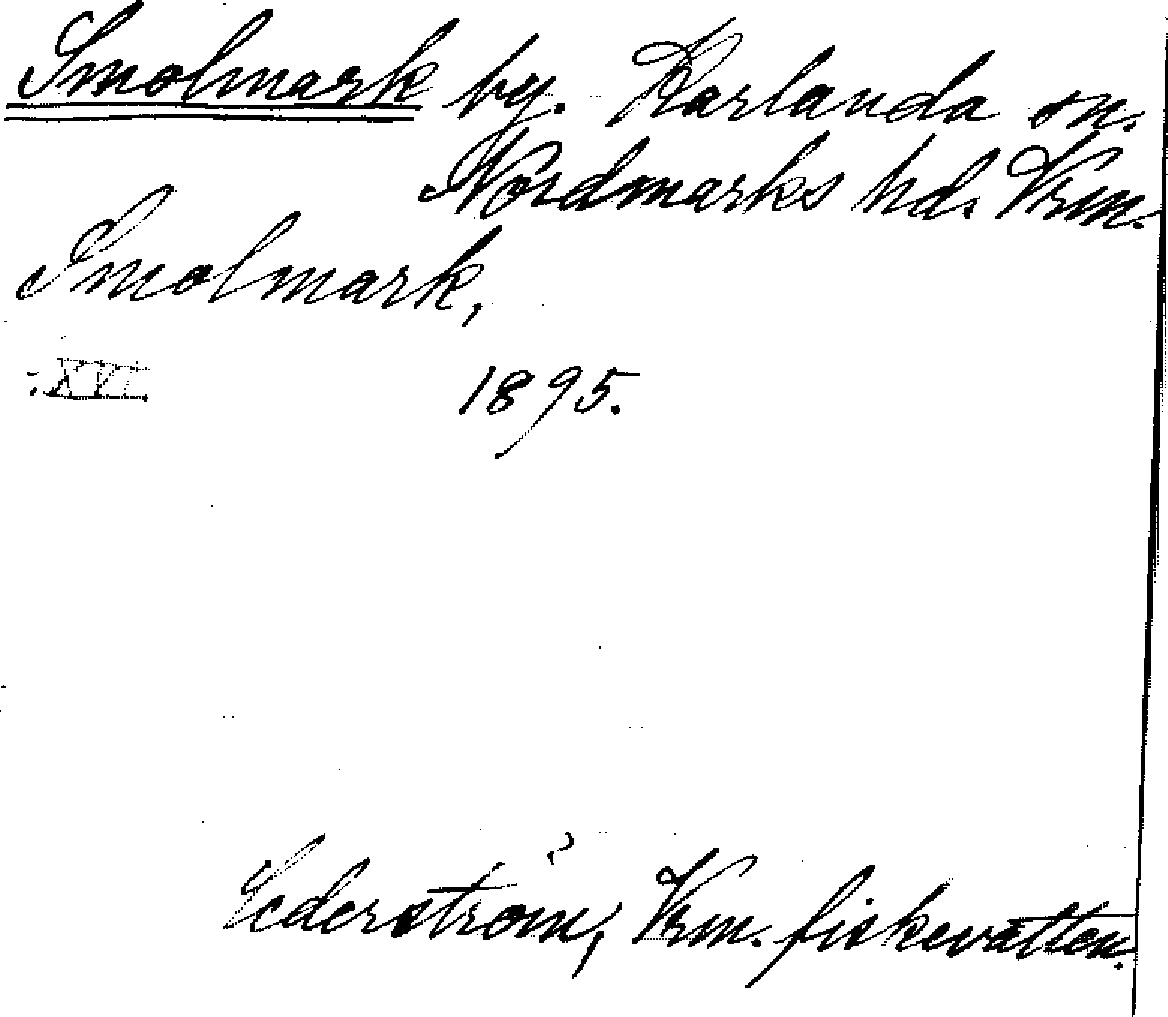 Smolmark by. Karlanda sn.
Nordmarks hd. Vrm.
Smolmark,
XVI. 1895.
Cederström, Vrm. fiskevatten.